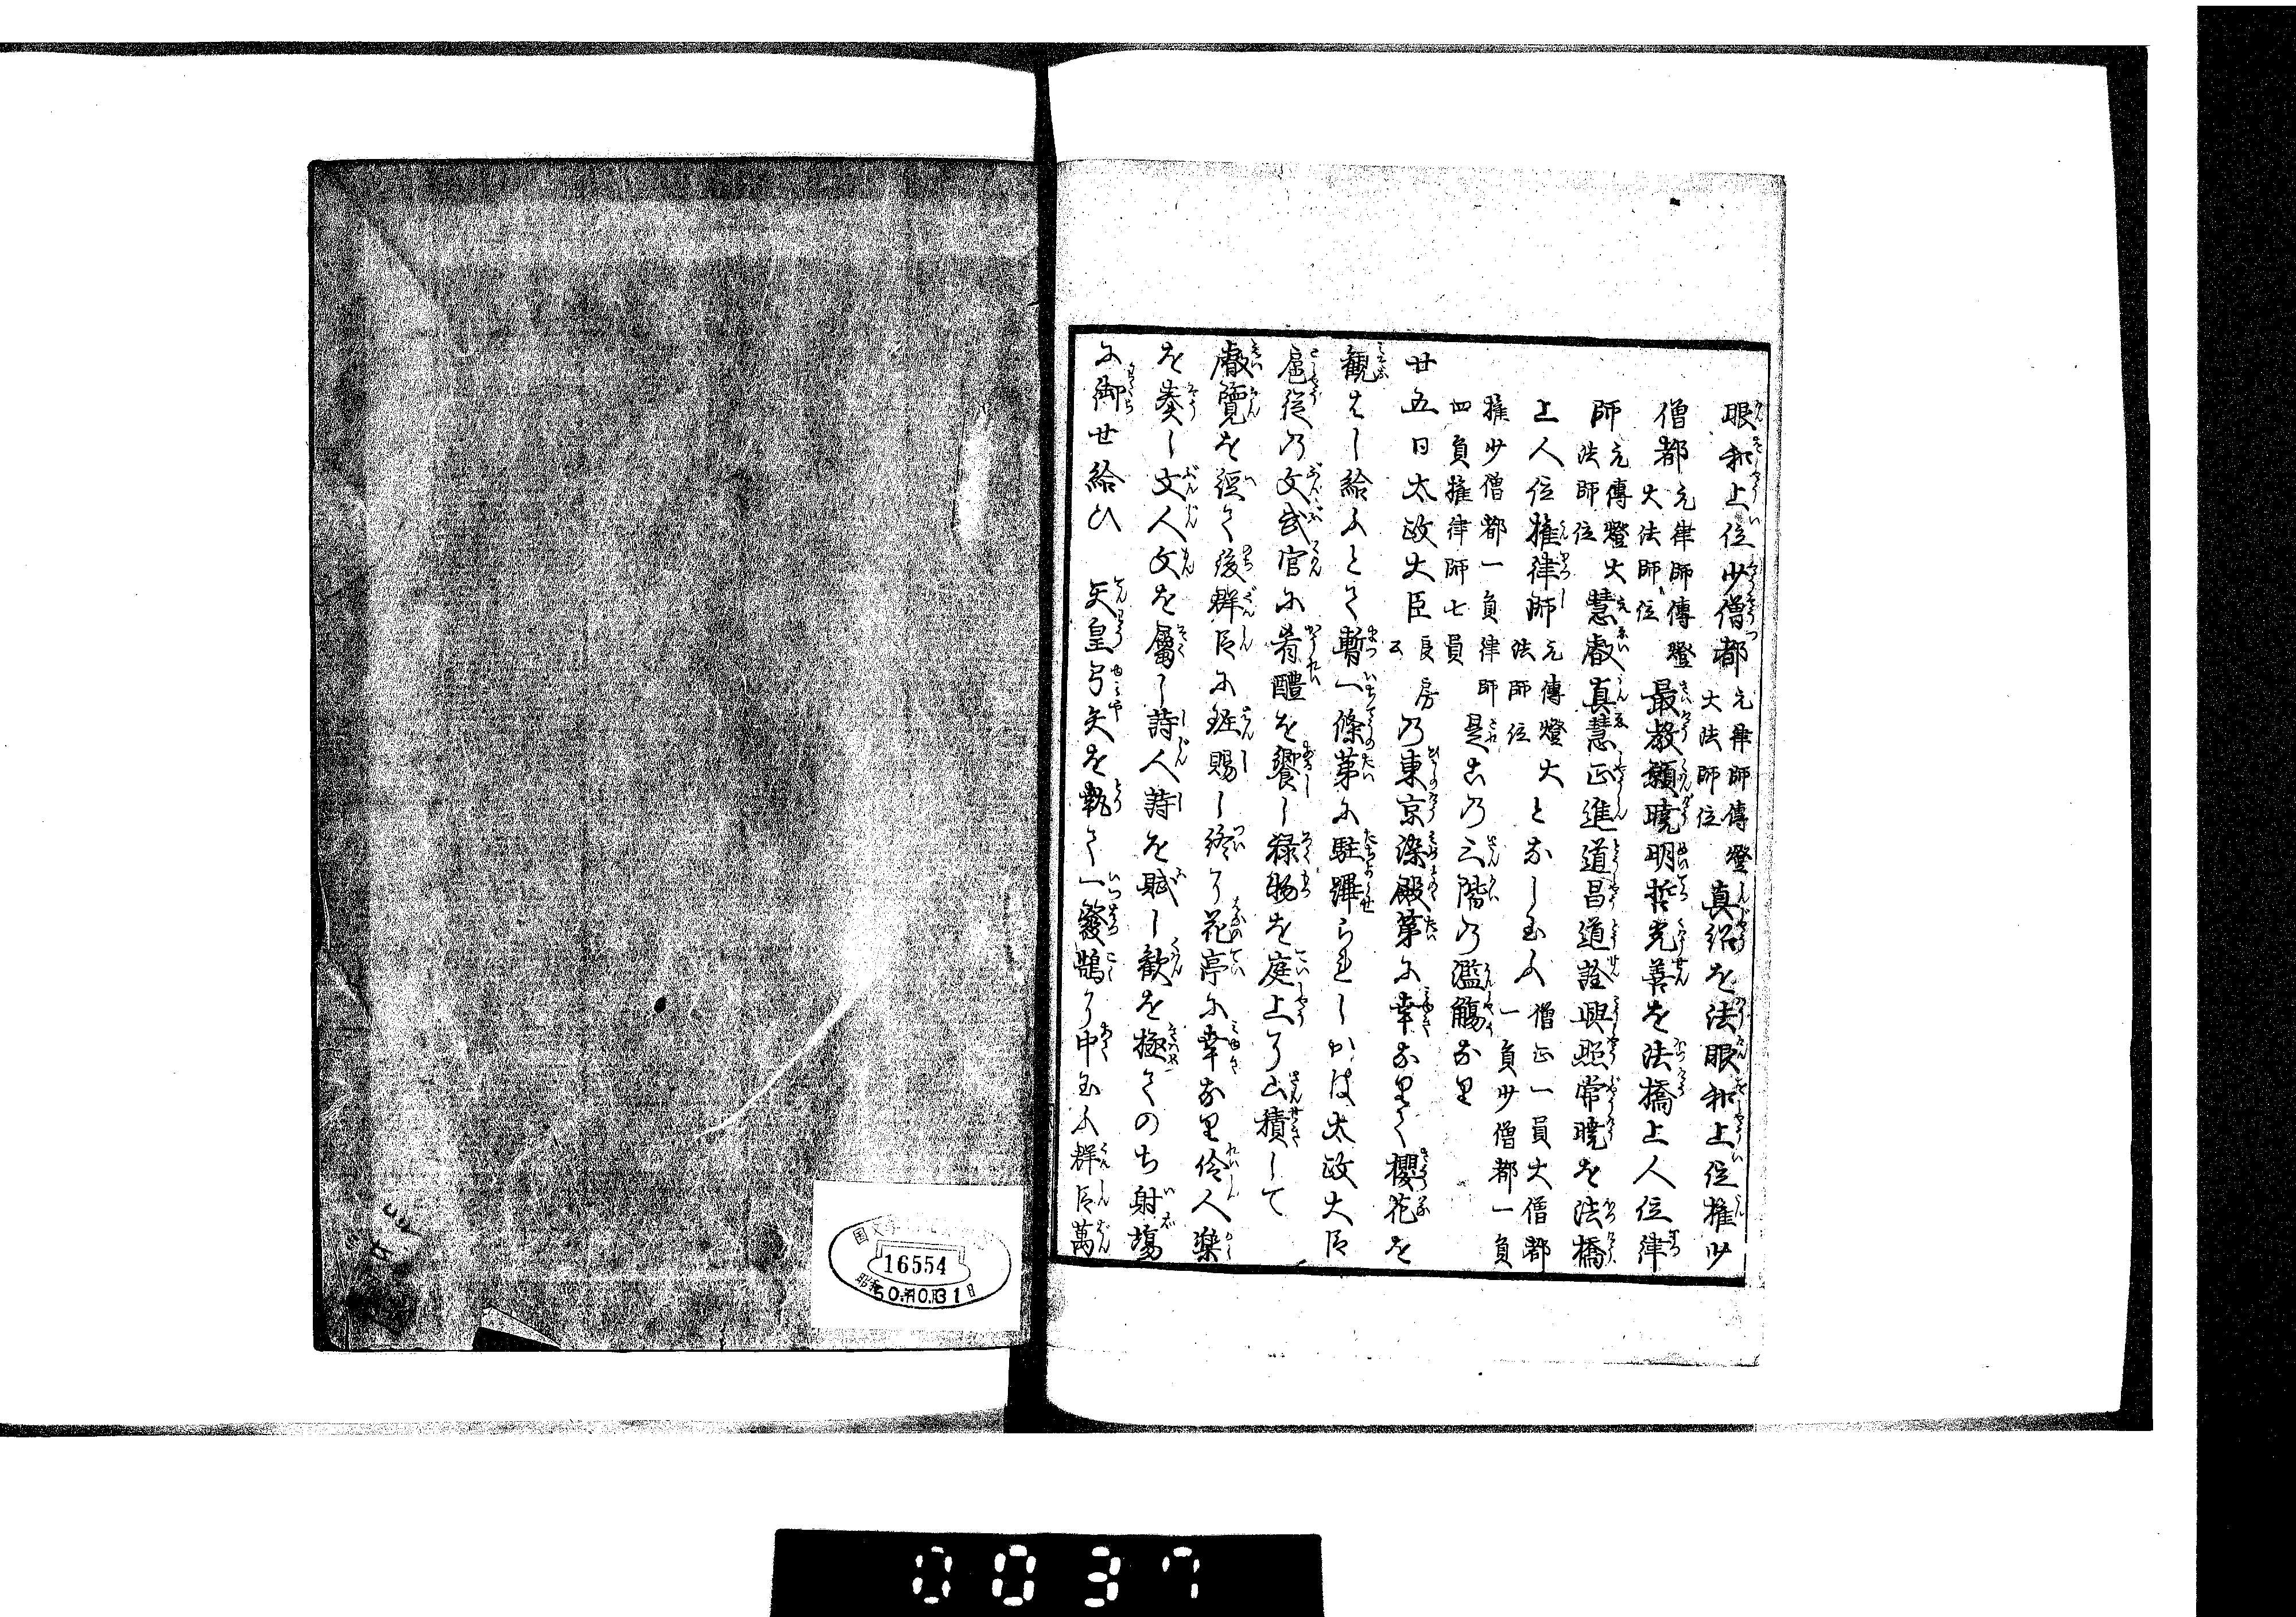 眼和上位少僧都元律師傳燈大法師位真紹を法眼和上位權少
僧都元律師傳燈大法師位最教願曉明哲光善を法橋上人位律
師元傳燈大法師位慧叡真慧正進道昌道詮興照常曉を法橋
上人位權律師元傳燈大法師位となし玉ふ僧正一員大僧都一員少僧都一員
權少僧都一員律師四員權律師七員是この三階の濫觴なり
廿五日太政大臣良房の東京染殿第に幸なりて櫻花を
觀そなはし給ふとて暫一條第に駐蹕られしかは太政大臣
扈従の文武官に肴醴を饗し禄物を庭上に山積して
叡覽を經て後群臣に班賜し終に花亭に幸なり伶人樂
を奏し文人文を屬し詩人詩を賦し歓を極てのち射場
に御せ給ひ 天皇弓矢を執て一發鵠に中玉ふ群臣萬
16554
0037